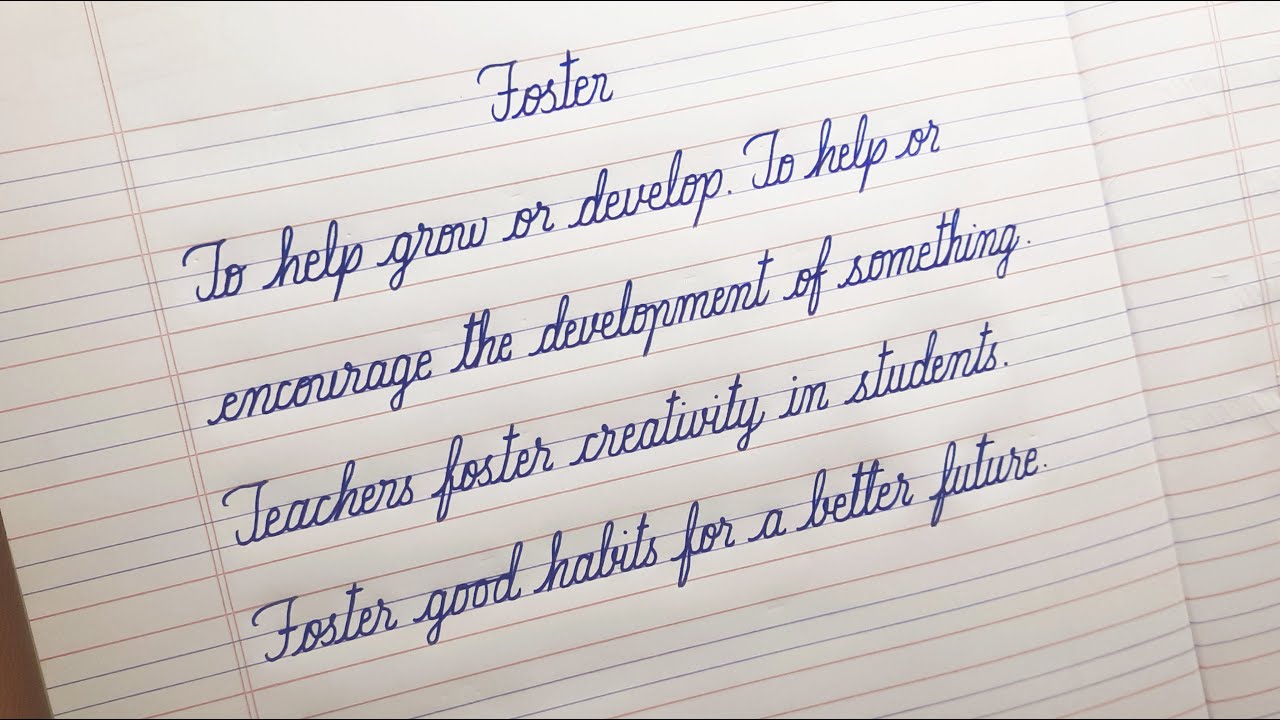 Foster
To help grow or develop. To help or
encourage the development of something.
Teachers foster creativity in students.
Foster good habits for a better future.